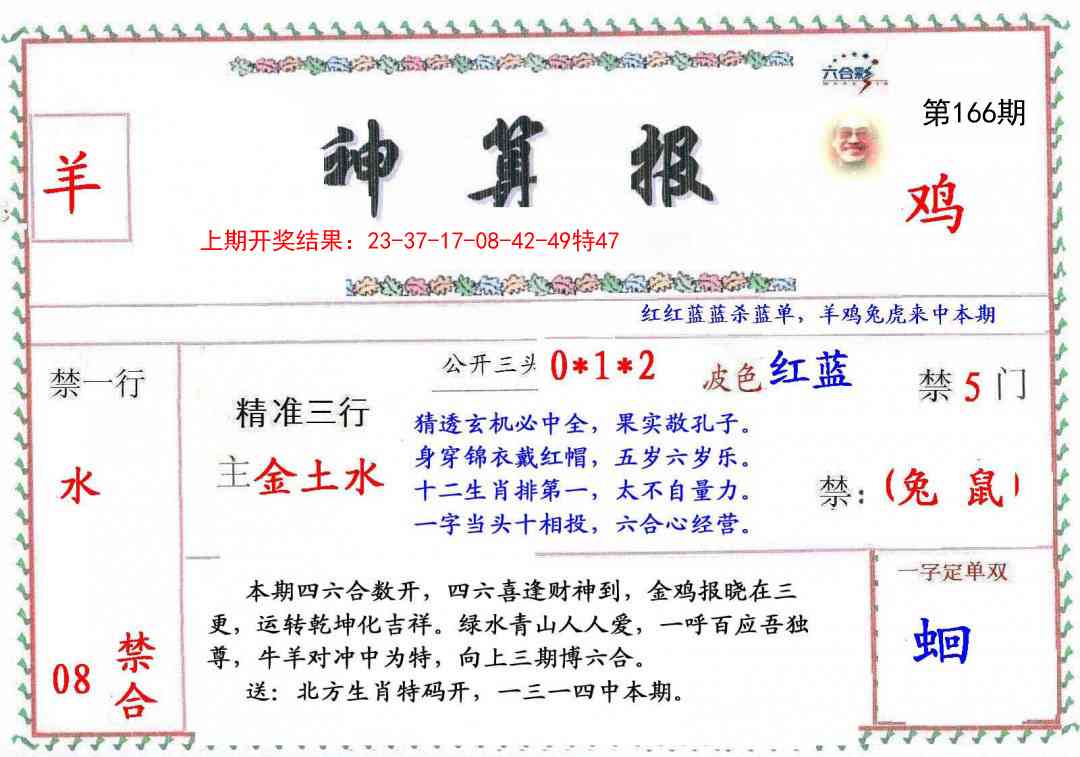 六合彩
第166期
羊
神算报
鸡
上期开奖结果：23-37-17-08-42-49特47
红红蓝蓝杀蓝单，羊鸡兔虎来中本期
禁一行
水
08
禁合
精准三行
主金土水
公开三头 0*1*2
波色 红蓝
禁 5 门
猜透玄机必中全，果实敬孔子。
身穿锦衣戴红帽，五岁六岁乐。
十二生肖排第一，太不自量力。
一字当头十相投，六合心经营。
禁：(兔 鼠)
本期四六合数开，四六喜逢财神到，金鸡报晓在三
更，运转乾坤化吉祥。绿水青山人人爱，一呼百应吾独
尊，牛羊对冲中为特，向上三期博六合。
送：北方生肖特码开，一三一四中本期。
一字定单双
蛔